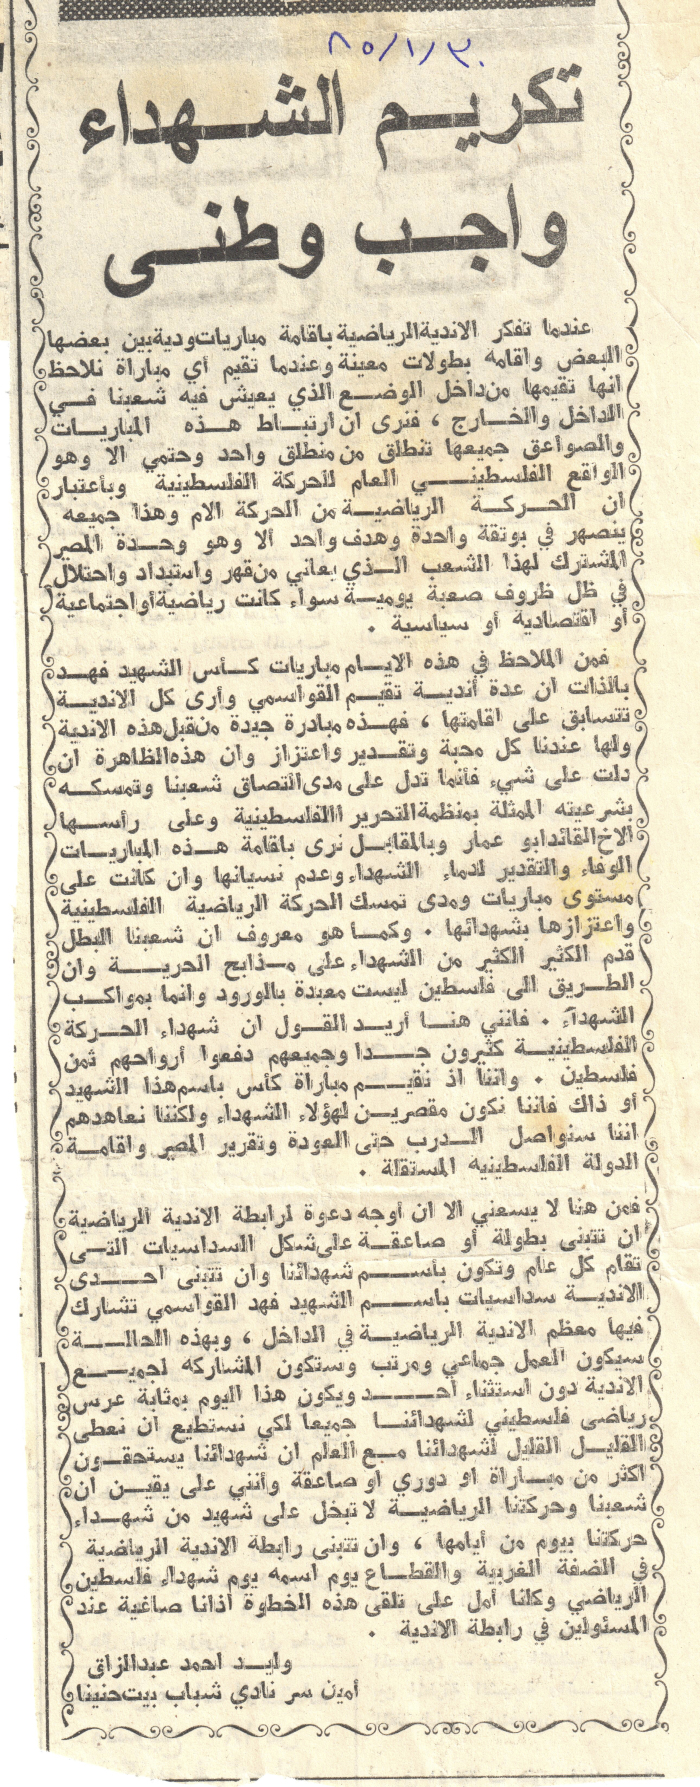 ٨٥/١/٣٠
تكريم الشهداء
واجب وطنى
عندما تفكر الاندية الرياضية باقامة مباريات ودية بين بعضها
البعض واقامه بطولات معينة وعندما تقيم أي مباراة نلاحظ
انها تقيمها من داخل الوضع الذي يعيش فيه شعبنا في
الداخل والخارج ، فنرى ان ارتباط هذه المباريات
والصواعق جميعها تنطلق من منطلق واحد وحتمي الا وهو
الواقع الفلسطيني العام للحركة الفلسطينية وبأعتبار
ان الحركة الرياضية من الحركة الام وهذا جميعه
ينصهر في بوتقة واحدة وهدف واحد الا وهو وحدة المصير
المشترك لهذا الشعب الذي يعاني من قهر واستبداد واحتلال
في ظل ظروف صعبة يومية سواء كانت رياضية أو اجتماعية
أو اقتصادية أو سياسية .
فمن الملاحظ في هذه الايام مباريات كأس الشهيد فهد
بالذات ان عدة أندية تقيم القواسمي وأرى كل الاندية
تتسابق على اقامتها ، فهذه مبادرة جيدة من قبل هذه الاندية
ولها عندنا كل محبة وتقدير واعتزاز وان هذه الظاهرة ان
دلت على شيء فأنما تدل على مدى التصاق شعبنا وتمسكه
بشرعيته الممثلة بمنظمة التحرير االفلسطينية وعلى رأسها
الاخ القائد ابو عمار وبالمقابل نرى باقامة هذه المباريات
الوفاء والتقدير لدماء الشهداء وعدم نسيانها وان كانت على
مستوى مباريات ومدى تمسك الحركة الرياضية الفلسطينية
واعتزازها بشهدائها . وكما هو معروف ان شعبنا البطل
قدم الكثير الكثير من الشهداء على مذابح الحرية وان
الطريق الى فلسطين ليست معبدة بالورود وانما بمواكب
الشهداء . فانني هنا أريد القول ان شهداء الحركة
الفلسطينية كثيرون جدا وجميعهم دفعوا أرواحهم ثمن
فلسطين . واننا اذ نقيم مباراة كأس باسم هذا الشهيد
أو ذاك فاننا نكون مقصرين لهؤلاء الشهداء ولكننا نعاهدهم
اننا سنواصل الدرب حتى العودة وتقرير المصير واقامة
الدولة الفلسطينيه المستقلة .
فمن هنا لا يسعني الا ان أوجه دعوة لرابطة الاندية الرياضية
ان تتبنى بطولة أو صاعقة على شكل السداسيات التى
تقام كل عام وتكون باسم شهدائنا وان تتبنى احدى
الاندية سداسيات باسم الشهيد فهد القواسمي تشارك
فيها معظم الاندية الرياضية في الداخل ، وبهذه الحالة
سيكون العمل جماعي ومرتب وستكون المشاركه لجميع
الاندية دون استثناء أحد ويكون هذا اليوم بمثابة عرس
رياضى فلسطيني لشهدائنا جميعا لكي نستطيع ان نعطى
القليل القليل لشهدائنا مع العلم ان شهدائنا يستحقون
اكثر من مباراة او دوري او صاعقة وأنني على يقين ان
شعبنا وحركتنا الرياضية لا تبخل على شهيد من شهداء
حركتنا بيوم من أيامها ، وان تتبنى رابطة الاندية الرياضية
في الضفة الغربية والقطاع يوم اسمه يوم شهداء فلسطين
الرياضي وكلنا أمل على تلقى هذه الخطوة أذانا صاغية عند
المسئولين في رابطة الاندية .
وليد احمد عبدالرازق
أمين سر نادي شباب بيت حنينا